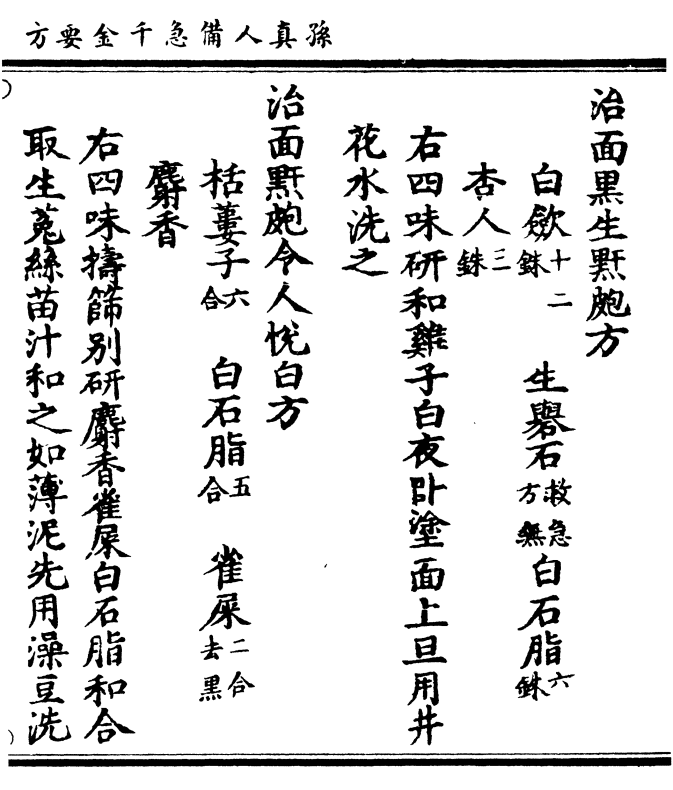 孫真人備急千金要方
治面黒生䵟皰方
白歛十二銖　生礜石救急方無　白石脂六銖
杏人三銖
右四味研和雞子白夜卧塗面上旦用井
花水洗之
治面䵟皰令人悦白方
栝蔞子六合　白石脂五合　雀屎二合去黒
麝香
右四味擣篩别研麝香雀屎白石脂和合
取生菟絲苗汁和之如薄泥先用澡豆洗